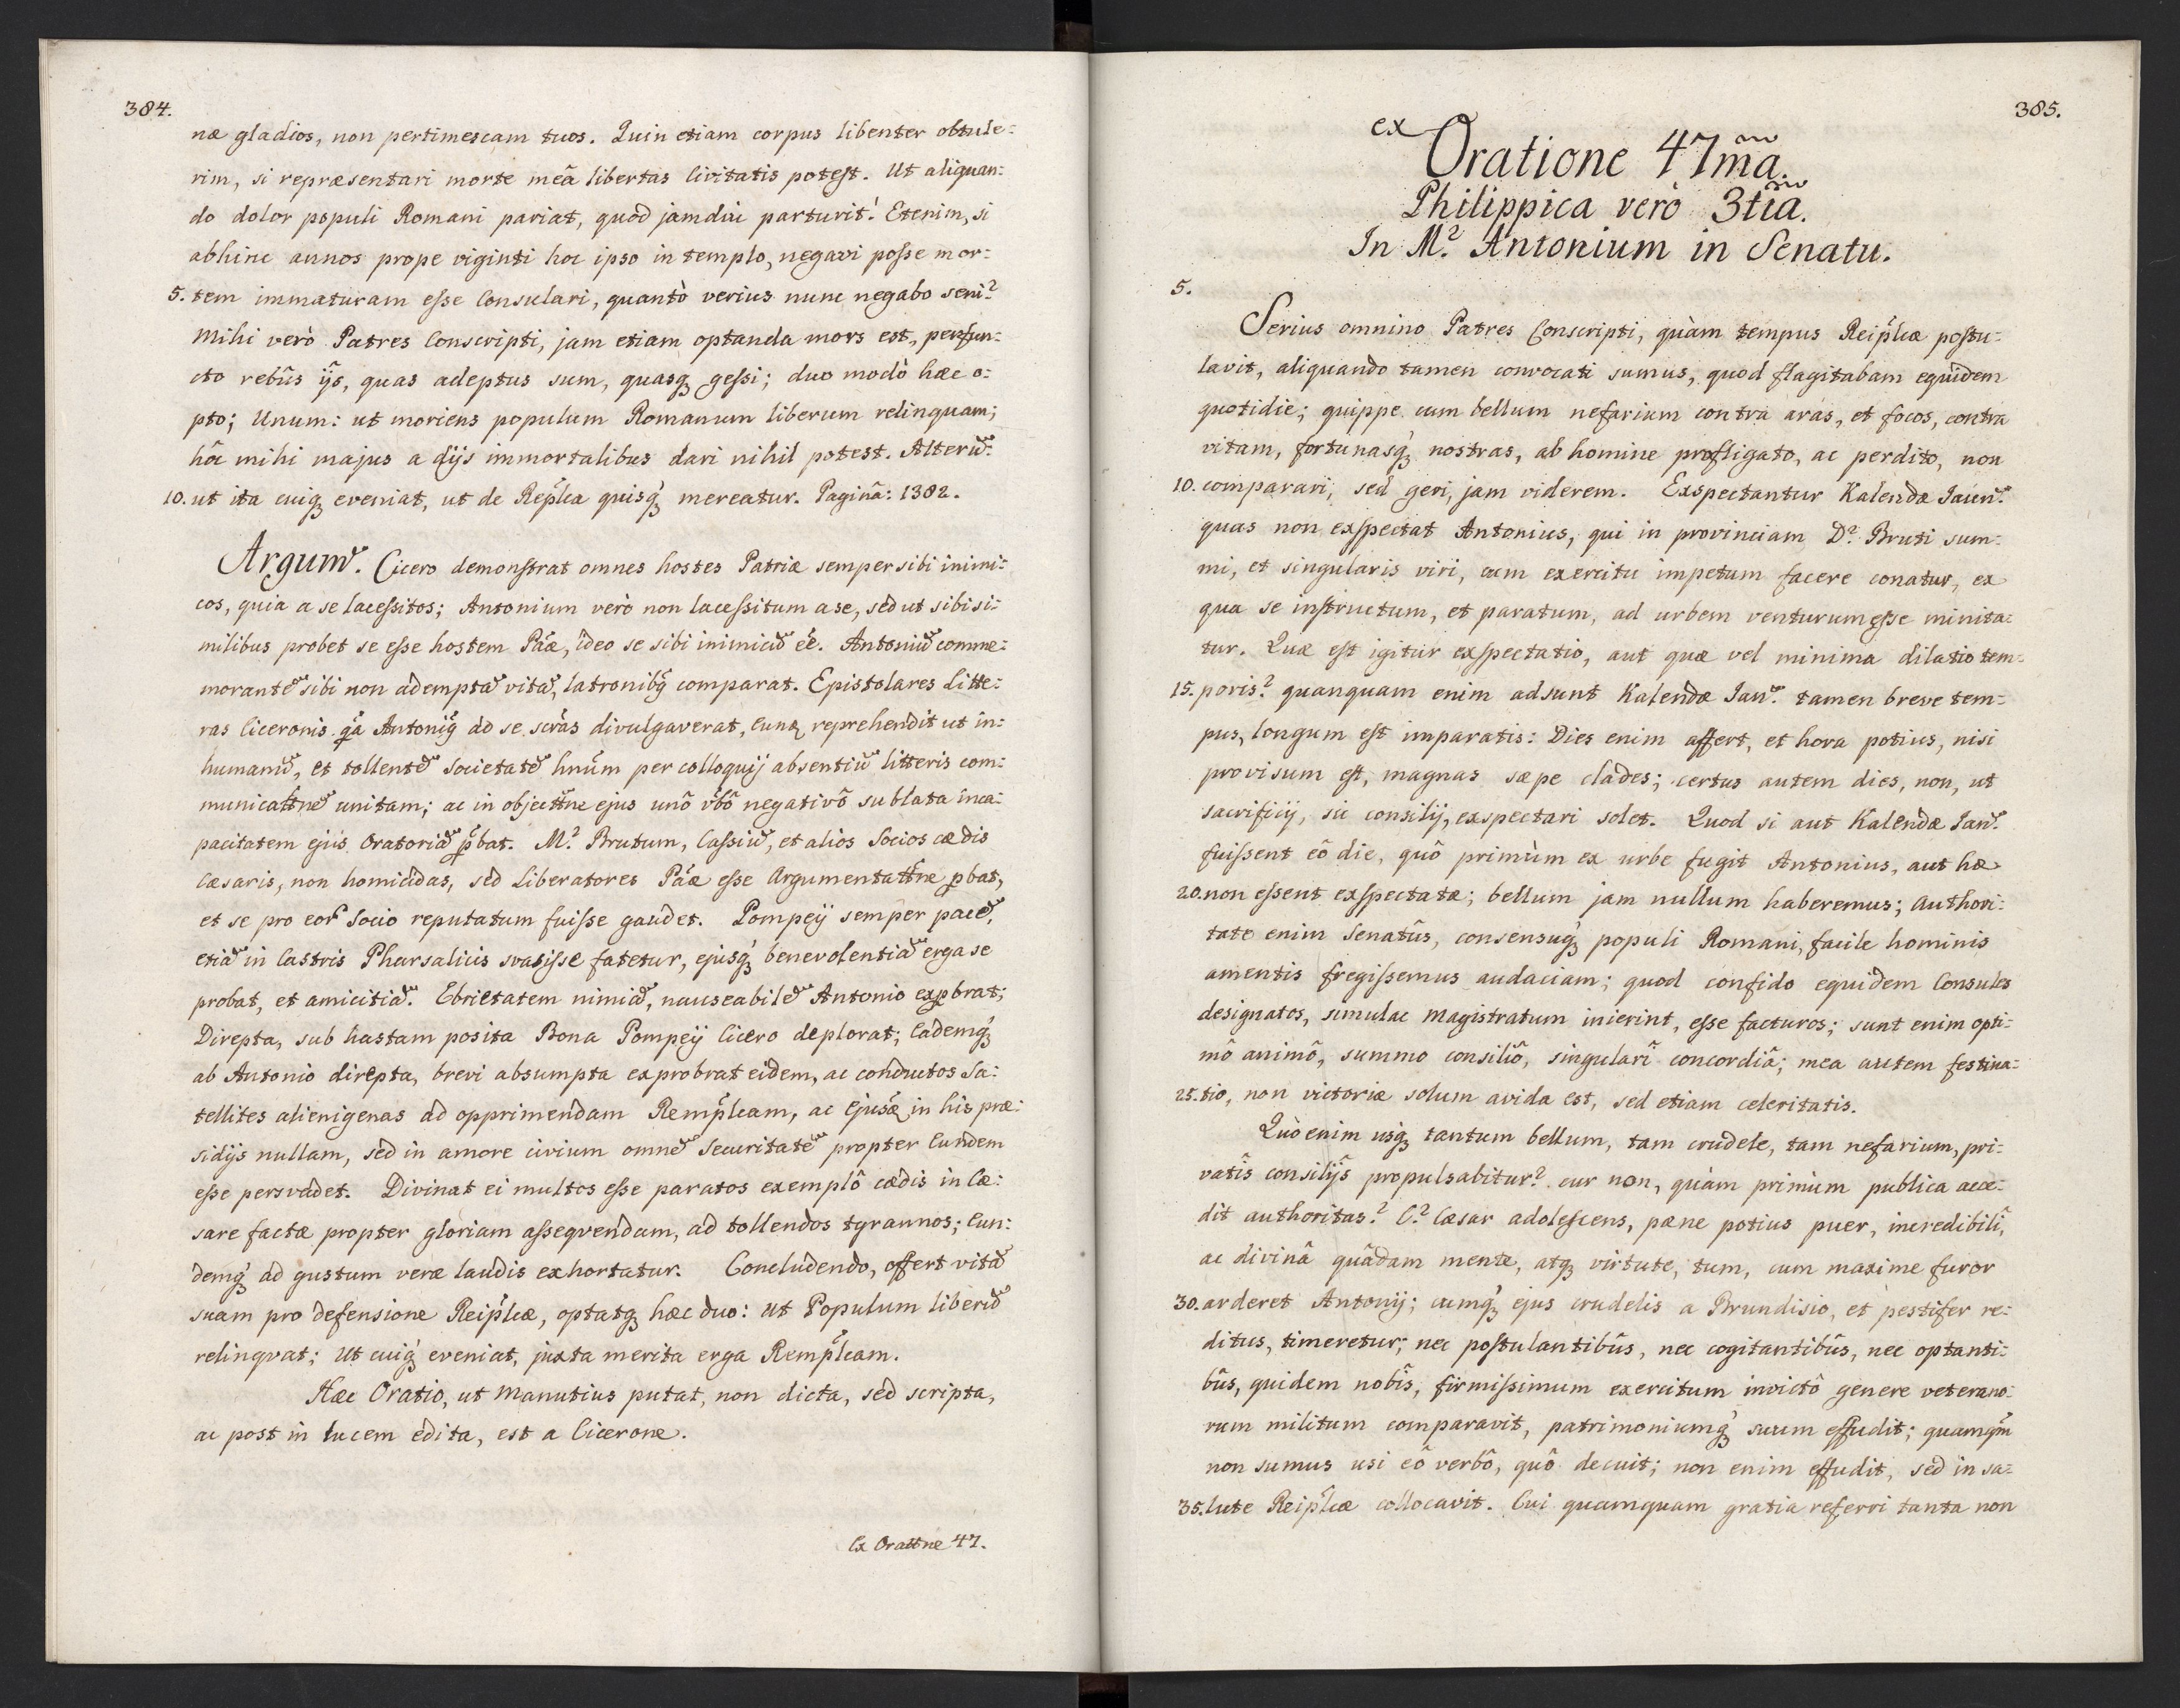 384.
næ gladios, non pertimescam tuos. Quin etiam corpus libenter obtule:
rim, si repræsentari morte meâ libertas Civitatis potest. Ut aliquan:
do dolor populi Romani pariat, quod jamdiu parturit! Etenim, si
abhinc annos prope viginti hoc ipso in templo, negavi posse mor:
5. tem immaturam esse Consulari, quantò verius nunc negabo seni?
Mihi verò Patres Conscripti, jam etiam optanda mors est, perfun:
cto rebûs ijs, quas adeptus sum, quasq́ꝫ gessi; duo modò hæc o:
pto; Unum: ut moriens populum Romanum liberum relinquam;
hôc mihi majus a dijs immortalibus dari nihil potest. Alterũ:
10. ut ita cuiqꝫ eveniat, ut de Rep̃lca quisq́ꝫ mereatur. Paginâ: 1382.
Argum̃. Cicero demonstrat omnes hostes Patriæ semper sibi inimi:
cos, quia a se lacessitos; Antonium verò non lacessitum a se, sed ut sibi si:
milibus probet se esse hostem Pãæ, ideo se sibi inimicũ ẽe. Antoniũ comme:
morantẽ sibi non ademptã vitã, latronibq̃ comparat. Epistolares Litte:
ras Ciceronis q̃a Antonig̃ ad se scr̃as divulgaverat, Cunq̃ reprehendit ut in:
humanũ, et tollentẽ societatẽ hnũm per colloquij absentiũ litteris com:
municat̃tnẽ unitam; ac in object̃ne ejus unô ṽbô negativô sublata inca:
pacitatem ejus Oratoriã p̃bat. M? Brutum, Cassiũ, et alios Socios cædis
Cæsaris, non homicidas, sed Liberatores Pãæ esse Argumentat̃tne ꝓbat,
et se pro eor̃ Socio reputatum fuisse gaudet. Pompeÿ semper pacẽ,
etiã in Castris Pharsalicis svasisse fatetur, ejusq́ꝫ benevolentiã erga se
probat, et amicitiã. Ebrietatem nimiã, nauseabilẽ Antonio exꝓbrat;
Direpta, sub hastam posita Bona Pompeÿ Cicero deplorat; Eademq́ꝫ
ab Antonio direpta, brevi absumpta exprobrat eidem, ac conductos Sa:
tellites alienigenas ad opprimendam Remp̃lcam, ac Ejusq̃ in his præ:
sidijs nullam, sed in amore civium omnẽ securitatẽ propter Eundem
esse persvadet. Divinat ei multos esse paratos exemplô cædis in Cæ:
sare factæ propter gloriam assequendam, ad tollendos tyrannos; Eun:
demq́ꝫ ad gustum veræ laudis exhortatur. Concludendo, offert vitã
suam pro defensione Reip̃lcæ, optatqꝫ hæc duo: ut Populum liberũ
relinqvat; Ut cuiq́ꝫ eveniat, juxta merita erga Remp̃lcam.
Hæc Oratio, ut Manutius putat, non dicta, sed scripta,
ac post in lucem edita, est a Cicerone.
Ex Orat̃tne 47.
385.
ex
Oratione 47mã.
Philippica verò 3tiã.
In M? Antonium in Senatu.
5.
Serius omnino Patres Conscripti, quàm tempus Reip̃lcæ postu:
lavit, aliquando tamen convocati sumus, quod flagitabam equidem
quotidie; quippe cum bellum nefarium contra aras, et focos, contra
vitam, fortunasq́ꝫ nostras, ab homine profligato, ac perdito, non
10. comparari, sed geri, jam viderem. Exspectantur Kalendæ Jaun̄.
quas non exspectat Antonius, qui in provinciam D? Bruti sum:
mi, et singularis viri, cum exercitu impetum facere conatur, ex
qua se instructum, et paratum, ad urbem venturum esse minita:
tur. Quæ est igitur exspectatio, aut quæ vel minima dilatio tem:
15. poris? quanquam enim adsunt Kalendæ Jan̄. tamen breve tem:
pus, longum est imparatis: Dies enim affert, et hora potius, nisi
provisum est, magnas sæpe clades; certus autem dies, non, ut
sacrificij, sic consilij, exspectari solet. Quod si aut Kalendæ Jan̄.
fuissent eô die, quô primùm ex urbe fugit Antonius, aut hæ
20. non essent exspectatæ; bellum jam nullum haberemus; Authori:
tate enim Senatûs, consensuq́ꝫ populi Romani, facile hominis
amentis fregissemus audaciam; quod confido equidem Consules
designatos, simulac Magistratum inierint, esse facturos; sunt enim opti:
mô animô, summo consiliô, singularî concordiâ; mea autem festina:
25. tio, non victoriæ solum avida est, sed etiam celeritatis.
Quò enim usq́ꝫ tantum bellum, tam crudele, tam nefarium, pri:
vatîs consilijs propulsabitur? cur non, quàm primùm publica acce:
dit authoritas? C? Cæsar adolescens, pæne potius puer, incredibilî,
ac divinâ quâdam mente, atqꝫ virtute, tum, cum maxime furor
30. arderet Antonij; cumq́ꝫ ejus crudelis a Brundisio, et pestifer re:
ditus, timeretur; nec postulantibûs, nec cogitantibûs, nec optanti:
bûs, quidem nobîs, firmissimum exercitum invictô genere veterano:
rum militum comparavit, patrimoniumq́ꝫ suum effudit; quamqũm
non sumus usi eô verbô, quô decuit; non enim effudit, sed in sa:
35. lute Reip̃lcæ collocavit. Cui quamquam gratia referri tanta non